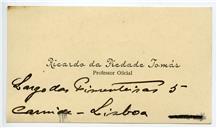 Ricardo da Piedade Tomás
Professor Oficial
Largo das Pimenteiras 5
Carnide - Lisboa